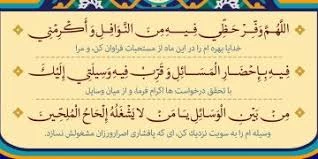 اللَّهُمَّ وَفِّرْ حَظِّي فِيهِ مِنَ النَّوَافِلِ وَ أَكْرِمْنِي
خدایا بهره ام را در این ماه از مستحبات فراوان کن، و مرا
فِيهِ بِإِحْضَارِ الْمَسَائِلِ وَ قَرِّبْ فِيهِ وَسِيلَتِي إِلَيْكَ
با تحقق درخواست ها اکرام فرما، و از میان وسایل
مِنْ بَيْنِ الْوَسَائِلِ يَا مَنْ لا يَشْغَلُهُ إِلْحَاحُ الْمُلِحِّينَ
وسیله ام را به سویت نزدیک کن، ای که پافشاری اصرارورزان مشغولش نسازد.